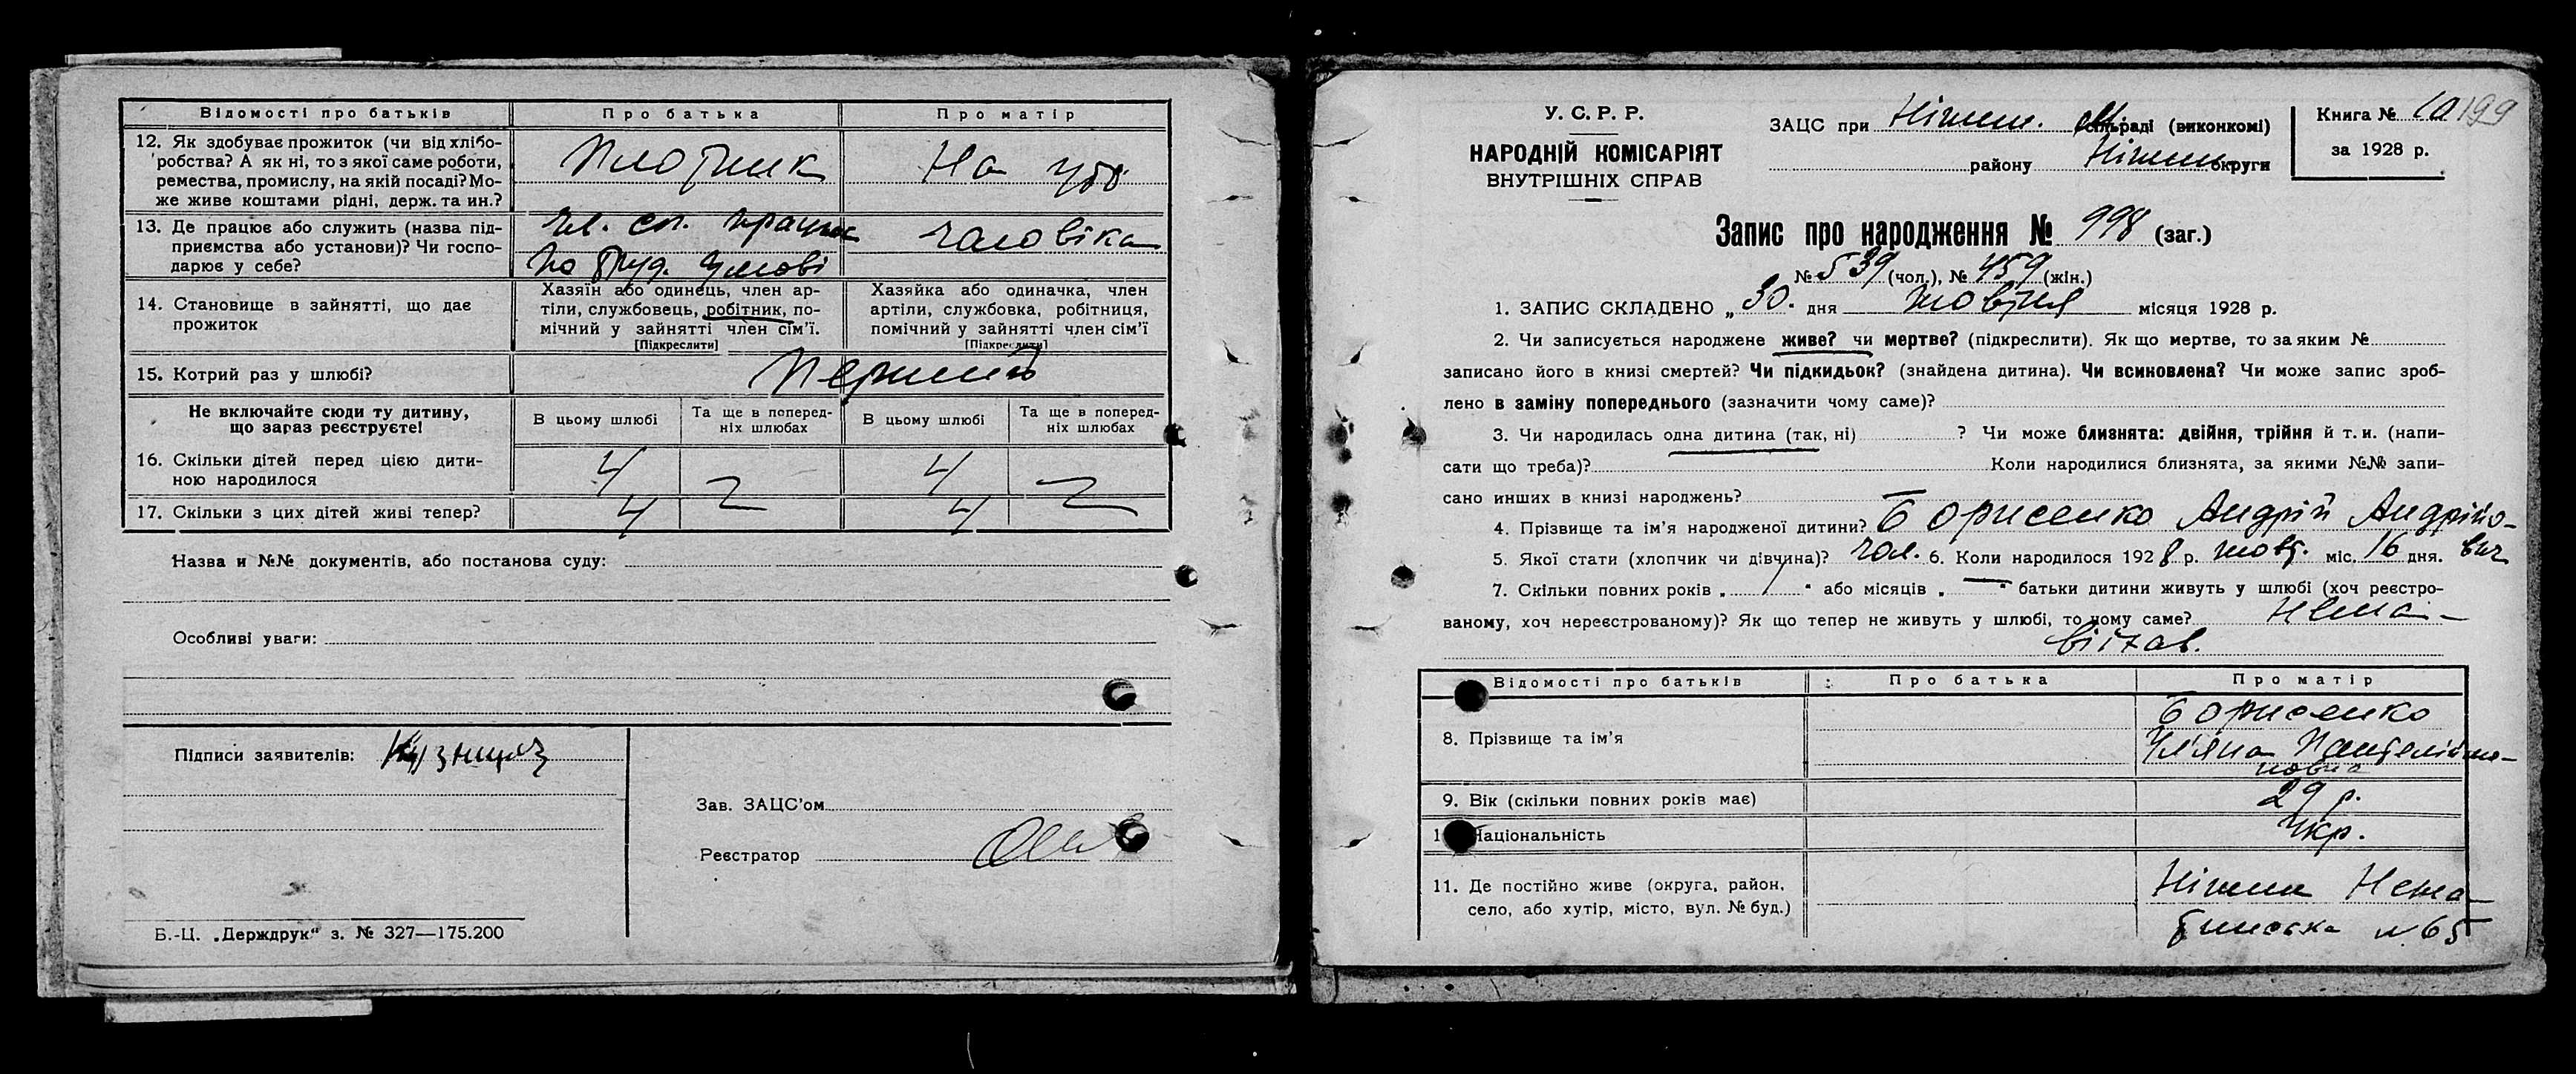 Відомості про батьків
Про батька
Про матір
12. Як здобуває прожиток (чи від хлібо-
робства? А як ні, то з якої саме роботи,
ремества, промислу, на якій посаді? Мо-
же живе коштами рідні, держ. та ин.?
Плотник
На утр
13. Де працює або служить (назва під-
приємства або установи)? Чи госпо-
дарює у себе?
чл. сп.
по труд. умові
чоловіка
14. Становище в зайнятті, що дає
прожиток
Хазяїн або одинець, член ар-
тілі, службовець, робітник, по-
мічний у зайнятті член сім'ї.
[Підкреслити]
Хазяйка або одиначка, член
артілі, службовка, робітниця,
помічний у зайнятті член сім'ї
[Підкреслити]
15. Котрий раз у шлюбі?
Перший
Не включайте сюди ту дитину,
що зараз реєструєте!
В цьому шлюбі
Та ще в поперед-
ніх шлюбах
В цьому шлюбі
Та ще в поперед-
ніх шлюбах
16. Скільки дітей перед цією дити-
ною народилося
4
4
17. Скільки з цих дітей живі тепер?
4
4
Назва и №№ документів, або постанова суду:
Особливі уваги:
Підписи заявителів:
Зав. ЗАЦС'ом
Реєстратор
Б.-Ц. „Держдрук“ з. № 327—175.200
У. С. Р. Р.
НАРОДНІЙ КОМІСАРІЯТ
ВНУТРІШНІХ СПРАВ
ЗАЦС при Ніжин. М. сільраді (виконкомі)
району Ніжин округи
Книга № 10
199
за 1928 р.
Запис про народження № 998 (заг.)
№ 539 (чол.), № 459 (жін.)
1. ЗАПИС СКЛАДЕНО „ 30. дня жовтня місяця 1928 р.
2. Чи записується народжене живе? чи мертве? (підкреслити). Як що мертве, то за яким №
записано його в книзі смертей? Чи підкидьок? (знайдена дитина). Чи всиновлена? Чи може запис зроб-
лено в заміну попереднього (зазначити чому саме)?
3. Чи народилась одна дитина (так, ні) ? Чи може близнята: двійня, трійня й т. и. (напи-
сати що треба)? Коли народилися близнята, за якими №№ запи-
сано инших в книзі народжень?
4. Прізвище та ім'я народженої дитини? Борисенко Андрій Андрійо-
5. Якої стати (хлопчик чи дівчина)? чол. 6. Коли народилося 1928 р. жовт. міс. 16 дня. вич
7. Скільки повних років „ / “ або місяців „ — “ батьки дитини живуть у шлюбі (хоч реєстро-
ваному, хоч нереєстрованому)? Як що тепер не живуть у шлюбі, то чому саме? Нема
відом.
Відомості про батьків
Про батька
Про матір
8. Прізвище та ім'я
Борисенко
Ул'яна Пантелеймо-
новна
9. Вік (скільки повних років має)
29 р.
Національність
Укр.
11. Де постійно живе (округа, район,
село, або хутір, місто, вул. № буд.)
Ніжин
№ 65